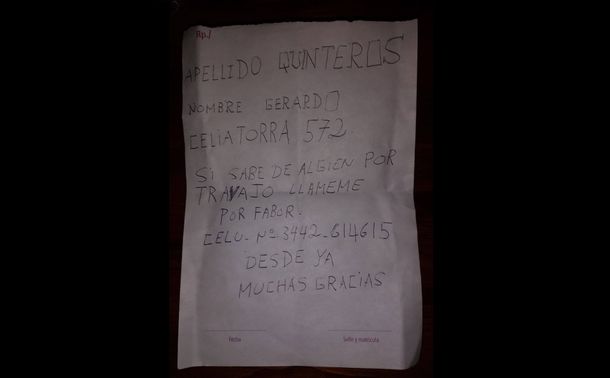 Rp./
APELLIDO QUINTEROS
NOMBRE GERARDO
CELIA TORRA 572.
SI SABE DE ALGIEN POR
TRAVAJO LLAMEME
POR FABOR.
CELU. Nº 3442-614615
DESDE YA
MUCHAS GRACIAS
Fecha
Sello y matrícula